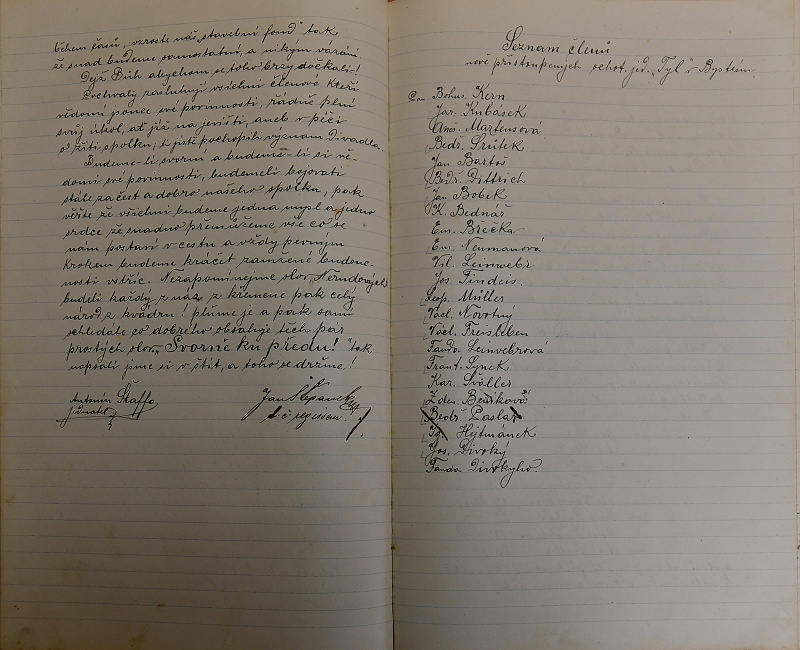 během časů, vzroste náš „stavební fond" tak
že snad budeme samostatní, a nikým vázáni
Dejž Bůh abychom se toho brzy dočkali!
Pochvaly zasluhují všichni členové kteří
vědomi jsouce své povinnosti, řádně plní
svůj úkol, ať již na jevišti, aneb v péči
o žití spolku, ti jistě pochopili význam Divadla.
Budeme-li svorni a budeme-li si vě-
domi své povinnosti, budemeli bojovati
stále za čest a dobro našeho spolku, pak
věřte že všichni budeme jedna mysl a jedno
srdce že snadno přemůžeme vše co se
nám postaví v cestu a vždy pevným
krokem budeme kráčet zamžené budouc-
nosti vstříc. Nezapomínejme slov „Nerudových
budeli každý z nás z křemene pak celý
národ z kvádrů! plňme je a pak sami
shledáte co dobrého obsahuje těch pár
prostých slov „Svorně ku předu!" tak
napsali jsme si v štít, a toho se držme!
Antonín Štaffo
jednatel
Jan Štěpánek
t. č. regisseur.
Seznam členů
nově přistoupených ochot. jed. „Tyl" v Bystrém.
Pan Bohus. Kern
Jar. Kubásek
Anes. Martensová
Bedř. Srůtek
Jan Bartoš
Bedř. Dittrich
Jan Bobek
K. Bednář
Em. Břečka
Em. Neumanová
Vil. Leinwebr
Jos. Findeis.
Leop. Müller
Václ. Novotný
Václ. Freisleben
Fando. Leinvebrová
Frant. Synek
Kar. Šváller
Zden. Benková
Bedř. Paslar
Ig. Hejtmánek
Jos. Divoký
Fanda Divokýho.